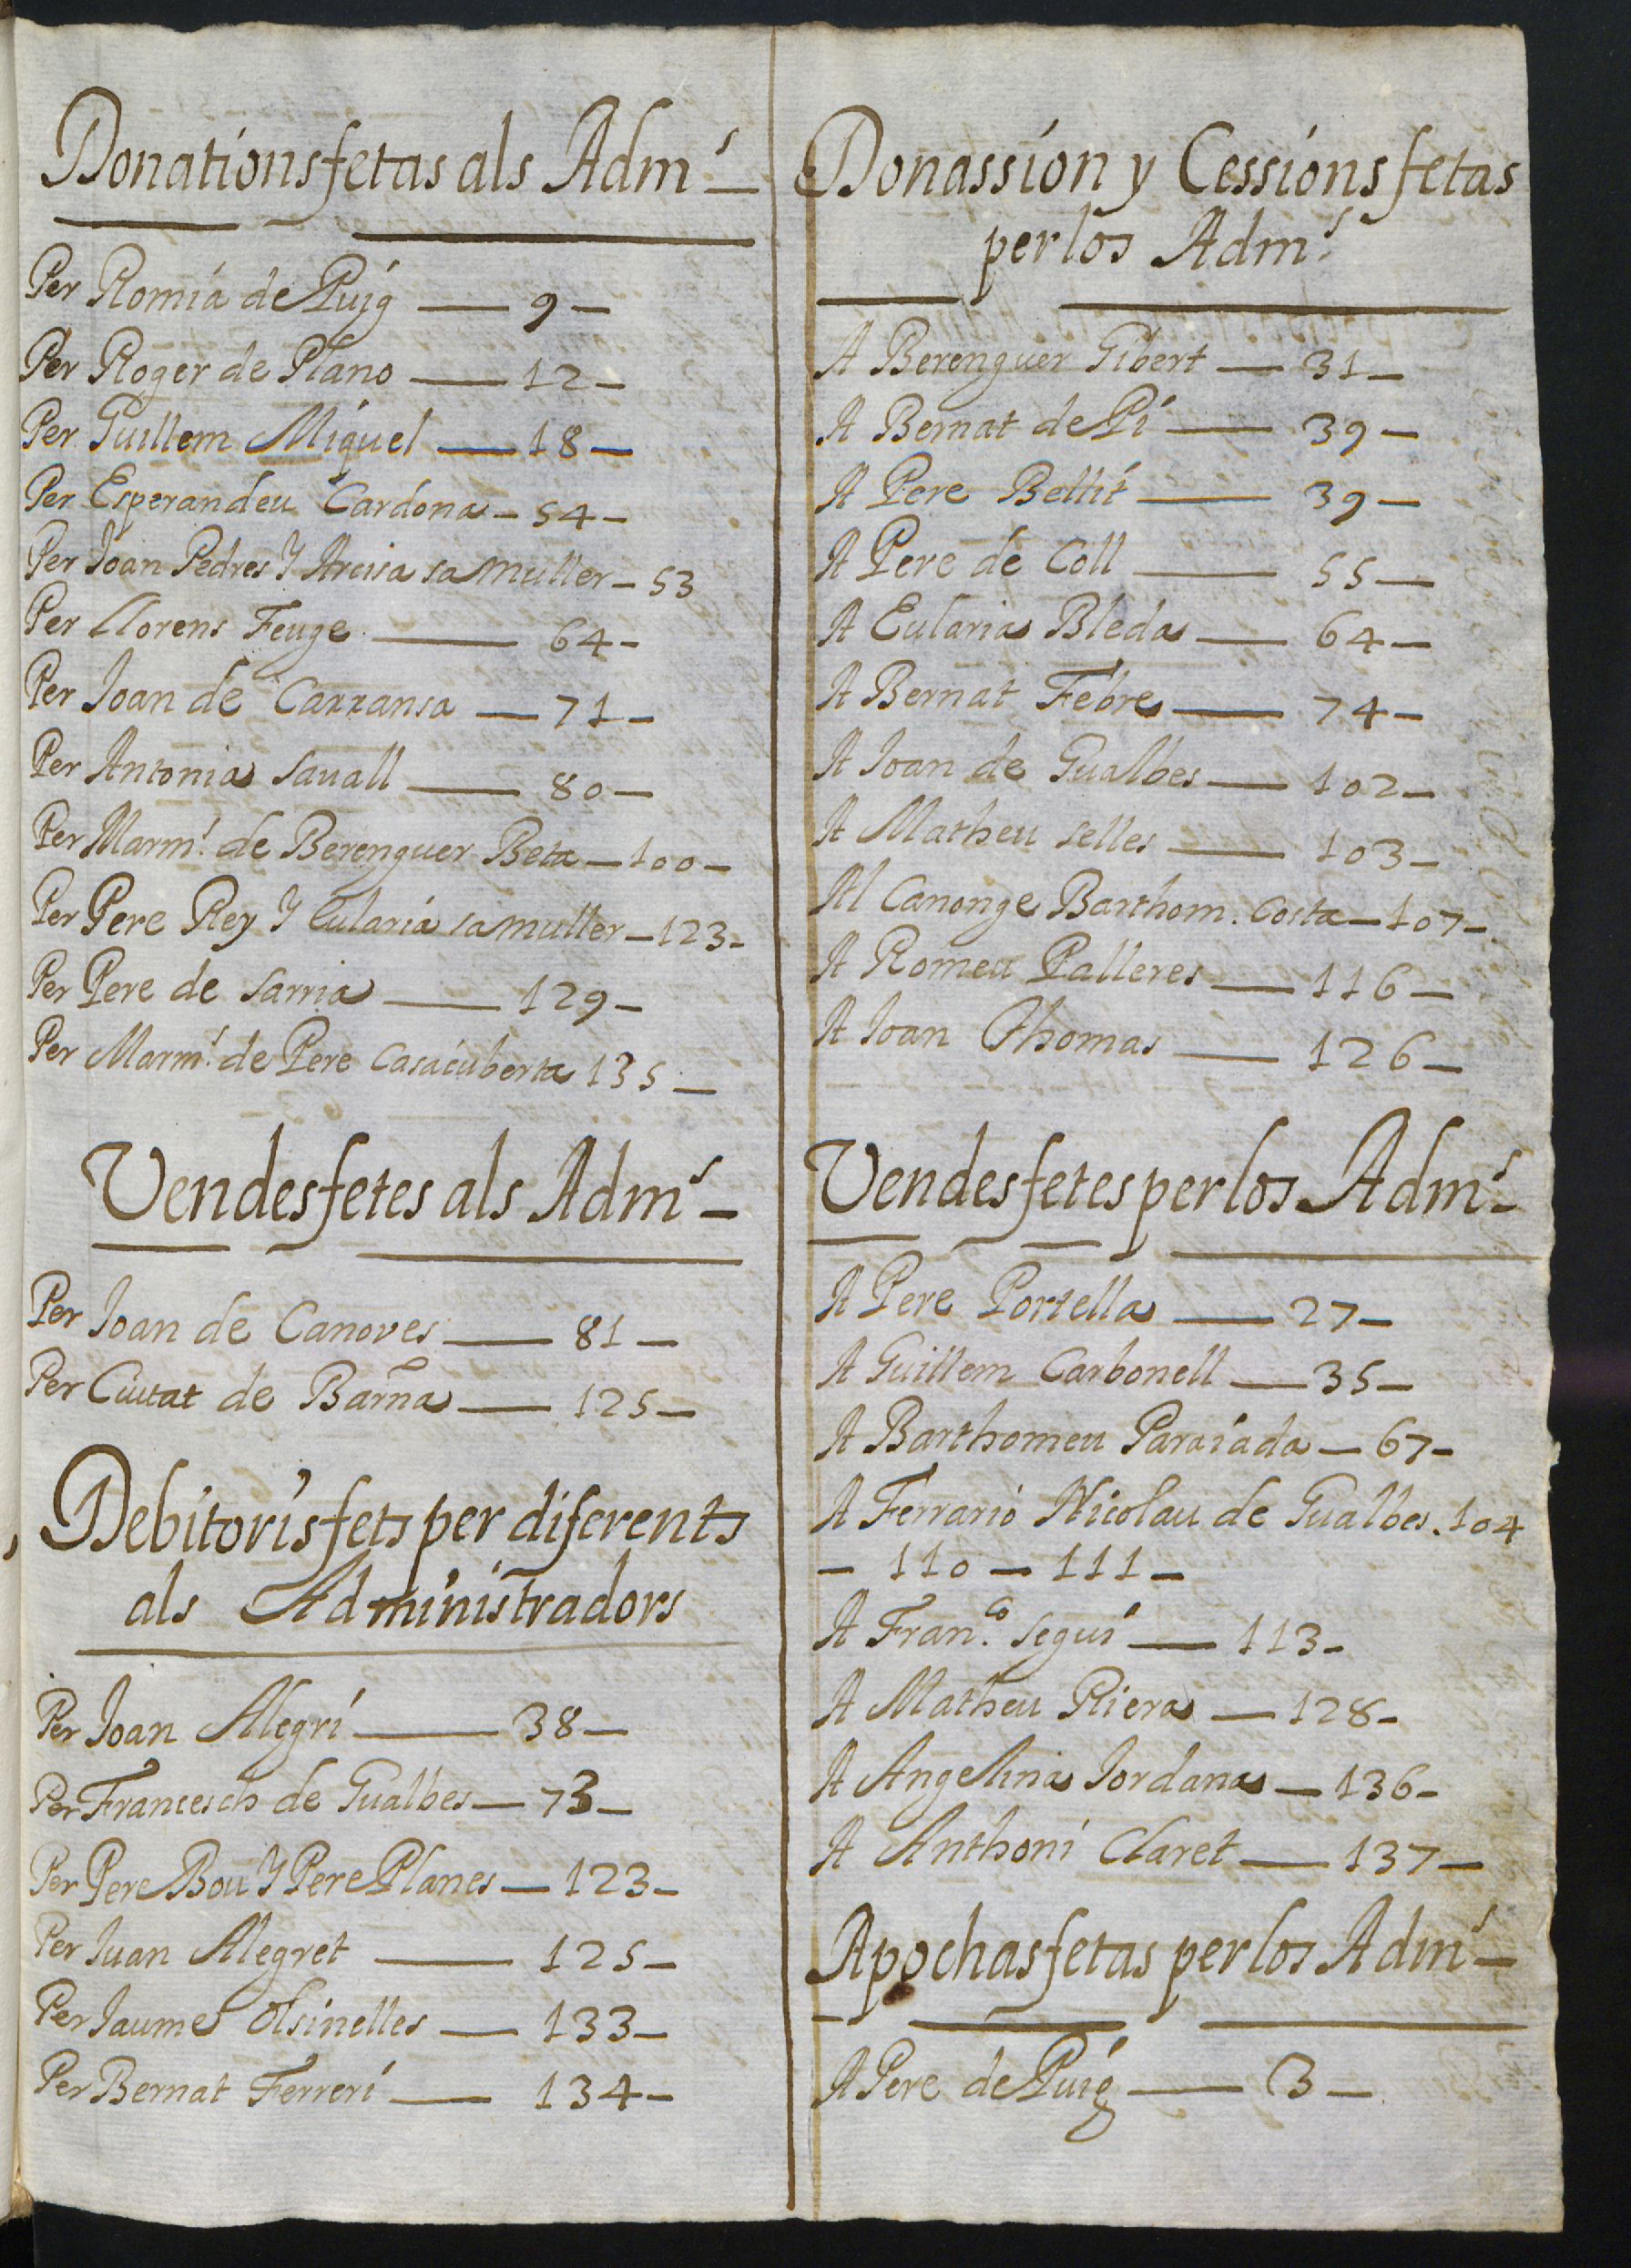 Donations fetas als Adm.s —
Per Romia de Puig — 9 —
Per Roger de Plano — 12 —
Per Guillem Miquel — 18 —
Per Esperandeu Cardona — 54 —
Per Joan Pedres Y Arcisa sa muller — 53
Per Llorens Feuge — 64 —
Per Joan de Carransa — 71 —
Per Antonia Savall — 80 —
Per Marm.s de Berenguer Beta — 100 —
Per Pere Rey Y Eularia sa muller — 123 —
Per Pere de Sarria — 129 —
Per Marm.s de Pere Casacuberta 135 —
Vendes fetes als Adm.s —
Per Joan de Canoves — 81 —
Per Ciutat de Barña — 125 —
Debitoris fets per diferents
als Administradors
Per Joan Alegri — 38 —
Per Francesch de Gualbes — 73 —
Per Pere Bou Y Pere Planes — 123 —
Per Juan Alegret — 125 —
Per Jaume Olsinelles — 133 —
Per Bernat Ferreri — 134 —
Donassion y Cessions fetas
per los Adm.s
A Berenguer Gibert — 31 —
A Bernat de Pi — 39 —
A Pere Bellit — 39 —
A Pere de Coll — 55 —
A Eularia Bleda — 64 —
A Bernat Febre — 74 —
A Joan de Gualbes — 102 —
A Matheu Selles — 103 —
Al Canonge Barthom. Costa — 107 —
A Romeu Palleres — 116 —
A Joan Thomas — 126 —
Vendes fetes per los Adm.s —
A Pere Portella — 27 —
A Guillem Carbonell — 35 —
A Barthomeu Paraiada — 67 —
A Ferrario Nicolau de Gualbes. 104
— 110 — 111 —
A Fran.co Segui — 113 —
A Matheu Riera — 128 —
A Angelina Jordana — 136 —
A Anthoni Claret — 137 —
Apochas fetas per los Adm.s —
A Pere de Puig — 3 —